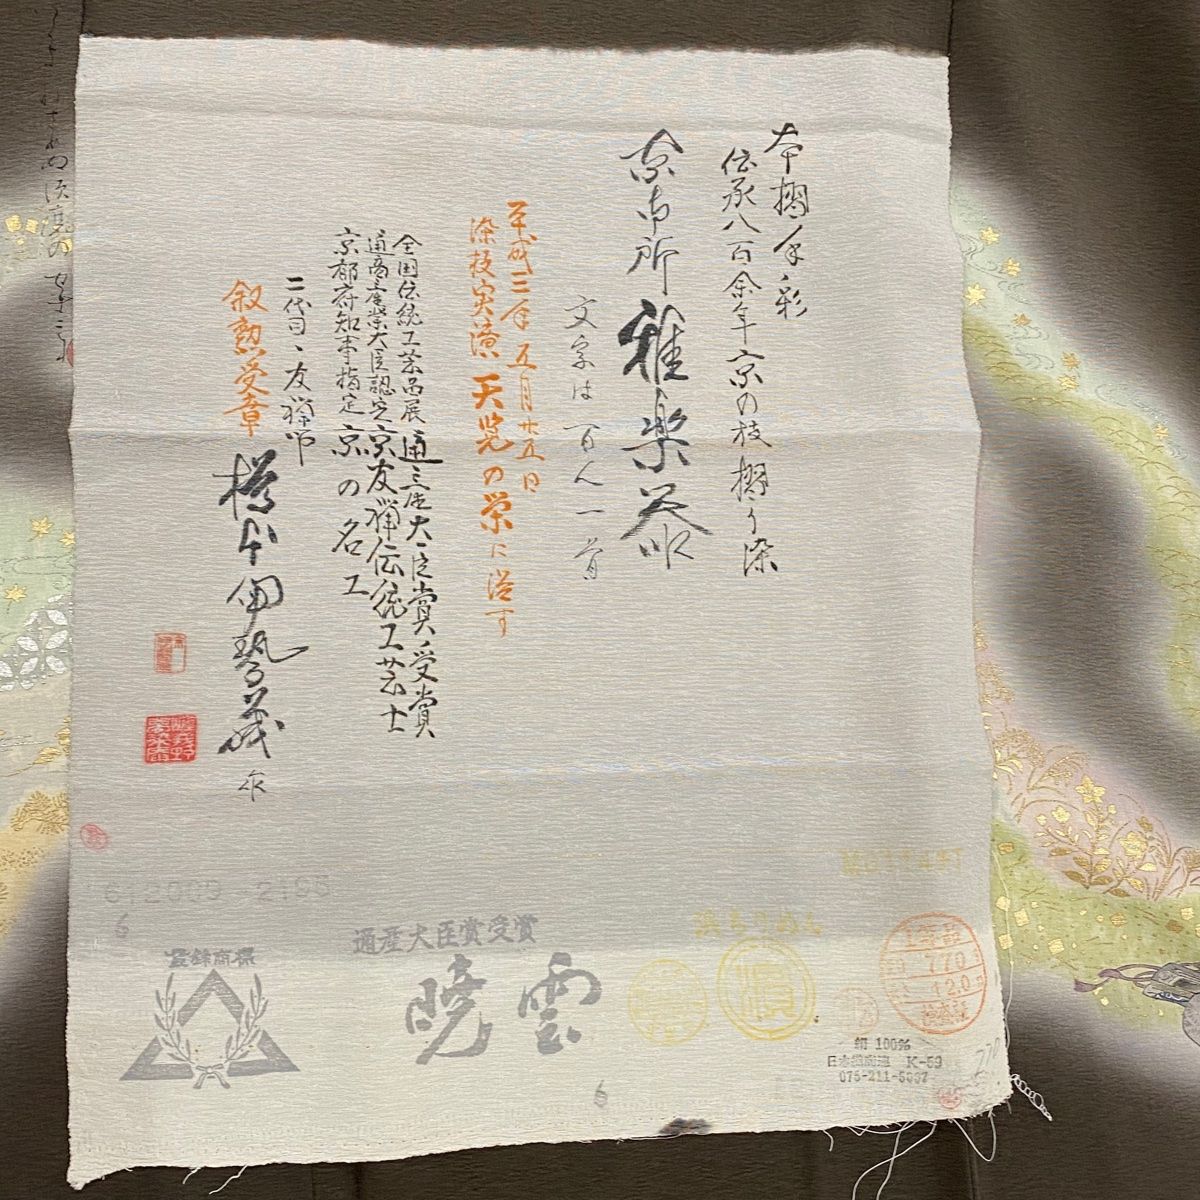 本摺手彩
伝承八百余年京の枝摺り染
京御所雅楽器
文字は百人一首
平成三年五月廿五日
染技実演天覧の栄に浴す
全国伝統工芸品展通産大臣賞受賞
通商産業大臣認定京友禅伝統工芸士
京都府知事指定京の名工
二代目・友禅師
叙勲受章
橋本伊勢義作
612009-2195
6
登録商標
通産大臣賞受賞
暁雲
浜ちりめん
770
12.0
絹 100%
K-59
075-211-5
6
770